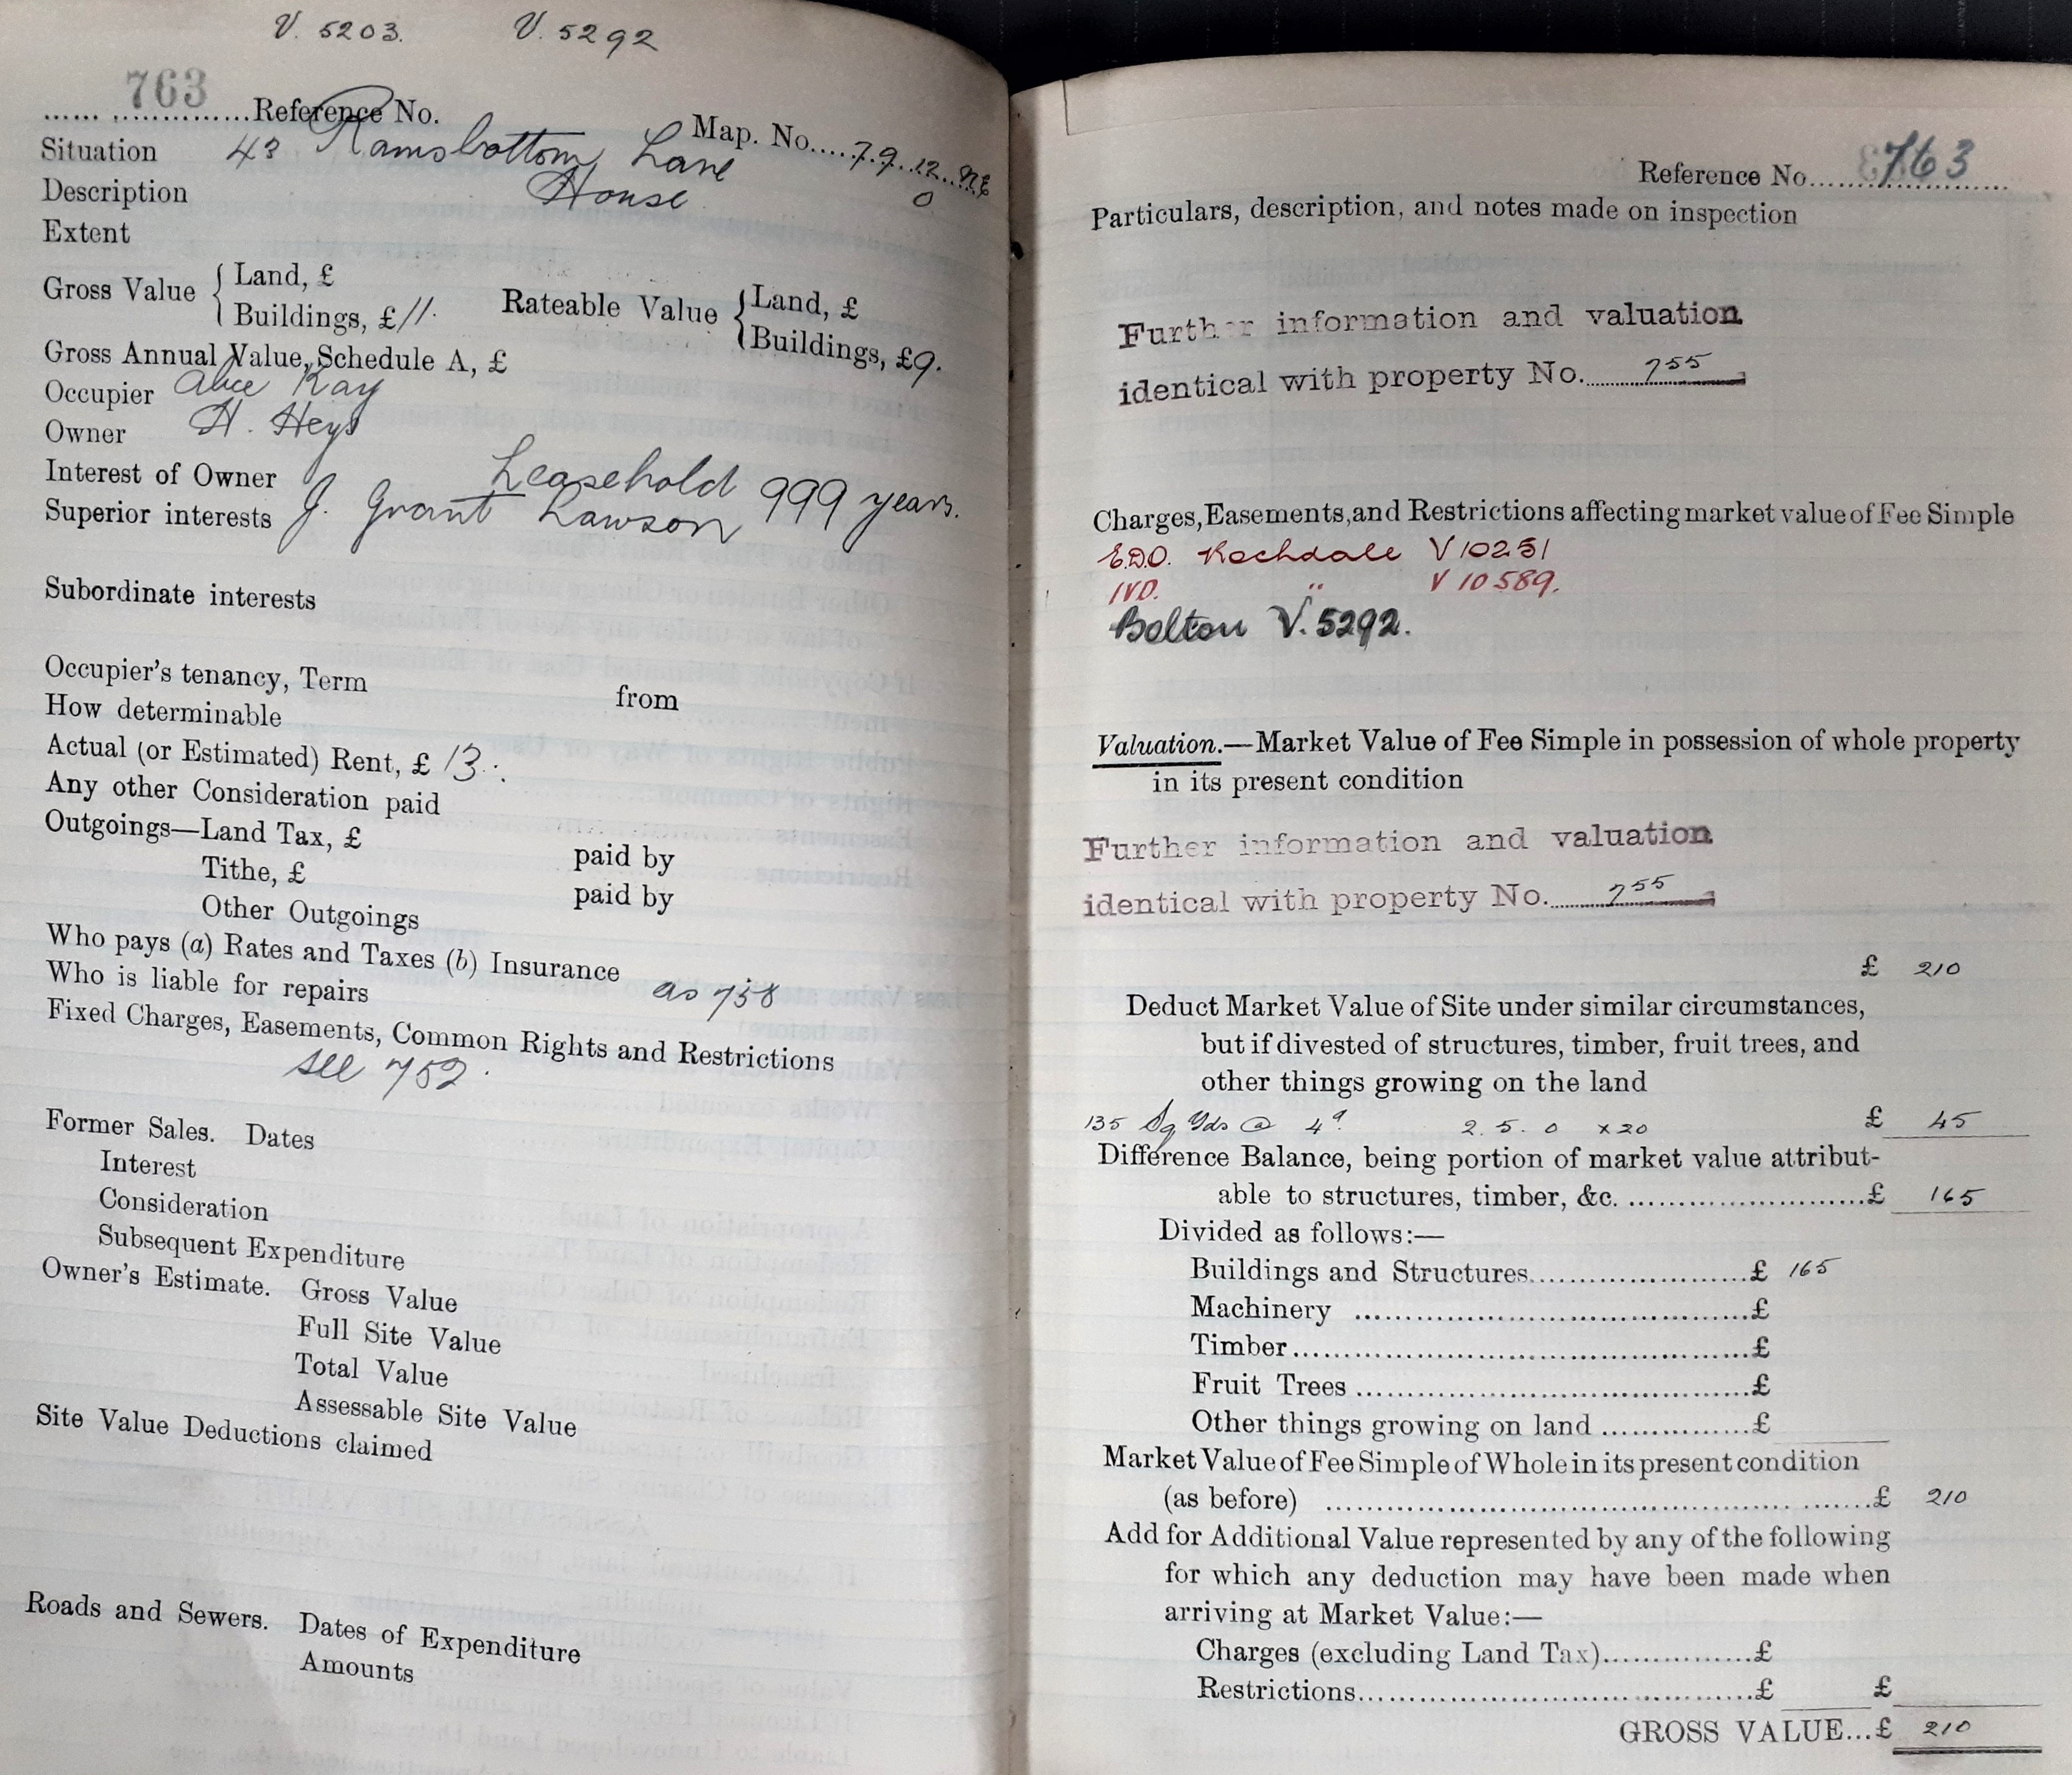 V. 5203. V. 5292
763
Reference No.
Map. No. 79.12. NE
Situation 43 Ramsbottom Lane
Description House
Extent
Gross Value { Land, £
Buildings, £11.
Rateable Value { Land, £
Buildings, £9.
Gross Annual Value, Schedule A, £
Occupier Alice Kay
Owner H. Heys
Interest of Owner Leasehold 999 years.
Superior interests J. Grant Lawson
Subordinate interests
Occupier's tenancy, Term from
How determinable
Actual (or Estimated) Rent, £ 13
Any other Consideration paid
Outgoings—Land Tax, £ paid by
Tithe, £ paid by
Other Outgoings
Who pays (a) Rates and Taxes (b) Insurance
Who is liable for repairs as 758
Fixed Charges, Easements, Common Rights and Restrictions
see 752.
Former Sales. Dates
Interest
Consideration
Subsequent Expenditure
Owner's Estimate. Gross Value
Full Site Value
Total Value
Assessable Site Value
Site Value Deductions claimed
Roads and Sewers. Dates of Expenditure
Amounts
Reference No. 763
Particulars, description, and notes made on inspection
Further information and valuation
identical with property No. 755
Charges, Easements, and Restrictions affecting market value of Fee Simple
E.D.O. Rochdale V 10251
IVD. " V 10589.
Bolton V. 5292.
Valuation.—Market Value of Fee Simple in possession of whole property
in its present condition
Further information and valuation
identical with property No. 755
£ 210
Deduct Market Value of Site under similar circumstances,
but if divested of structures, timber, fruit trees, and
other things growing on the land
135 Sq Yds @ 4d 2. 5. 0 x 20 £ 45
Difference Balance, being portion of market value attribut-
able to structures, timber, &c. £ 165
Divided as follows:—
Buildings and Structures £ 165
Machinery £
Timber £
Fruit Trees £
Other things growing on land £
Market Value of Fee Simple of Whole in its present condition
(as before) £ 210
Add for Additional Value represented by any of the following
for which any deduction may have been made when
arriving at Market Value:—
Charges (excluding Land Tax) £
Restrictions £ £
GROSS VALUE...£ 210